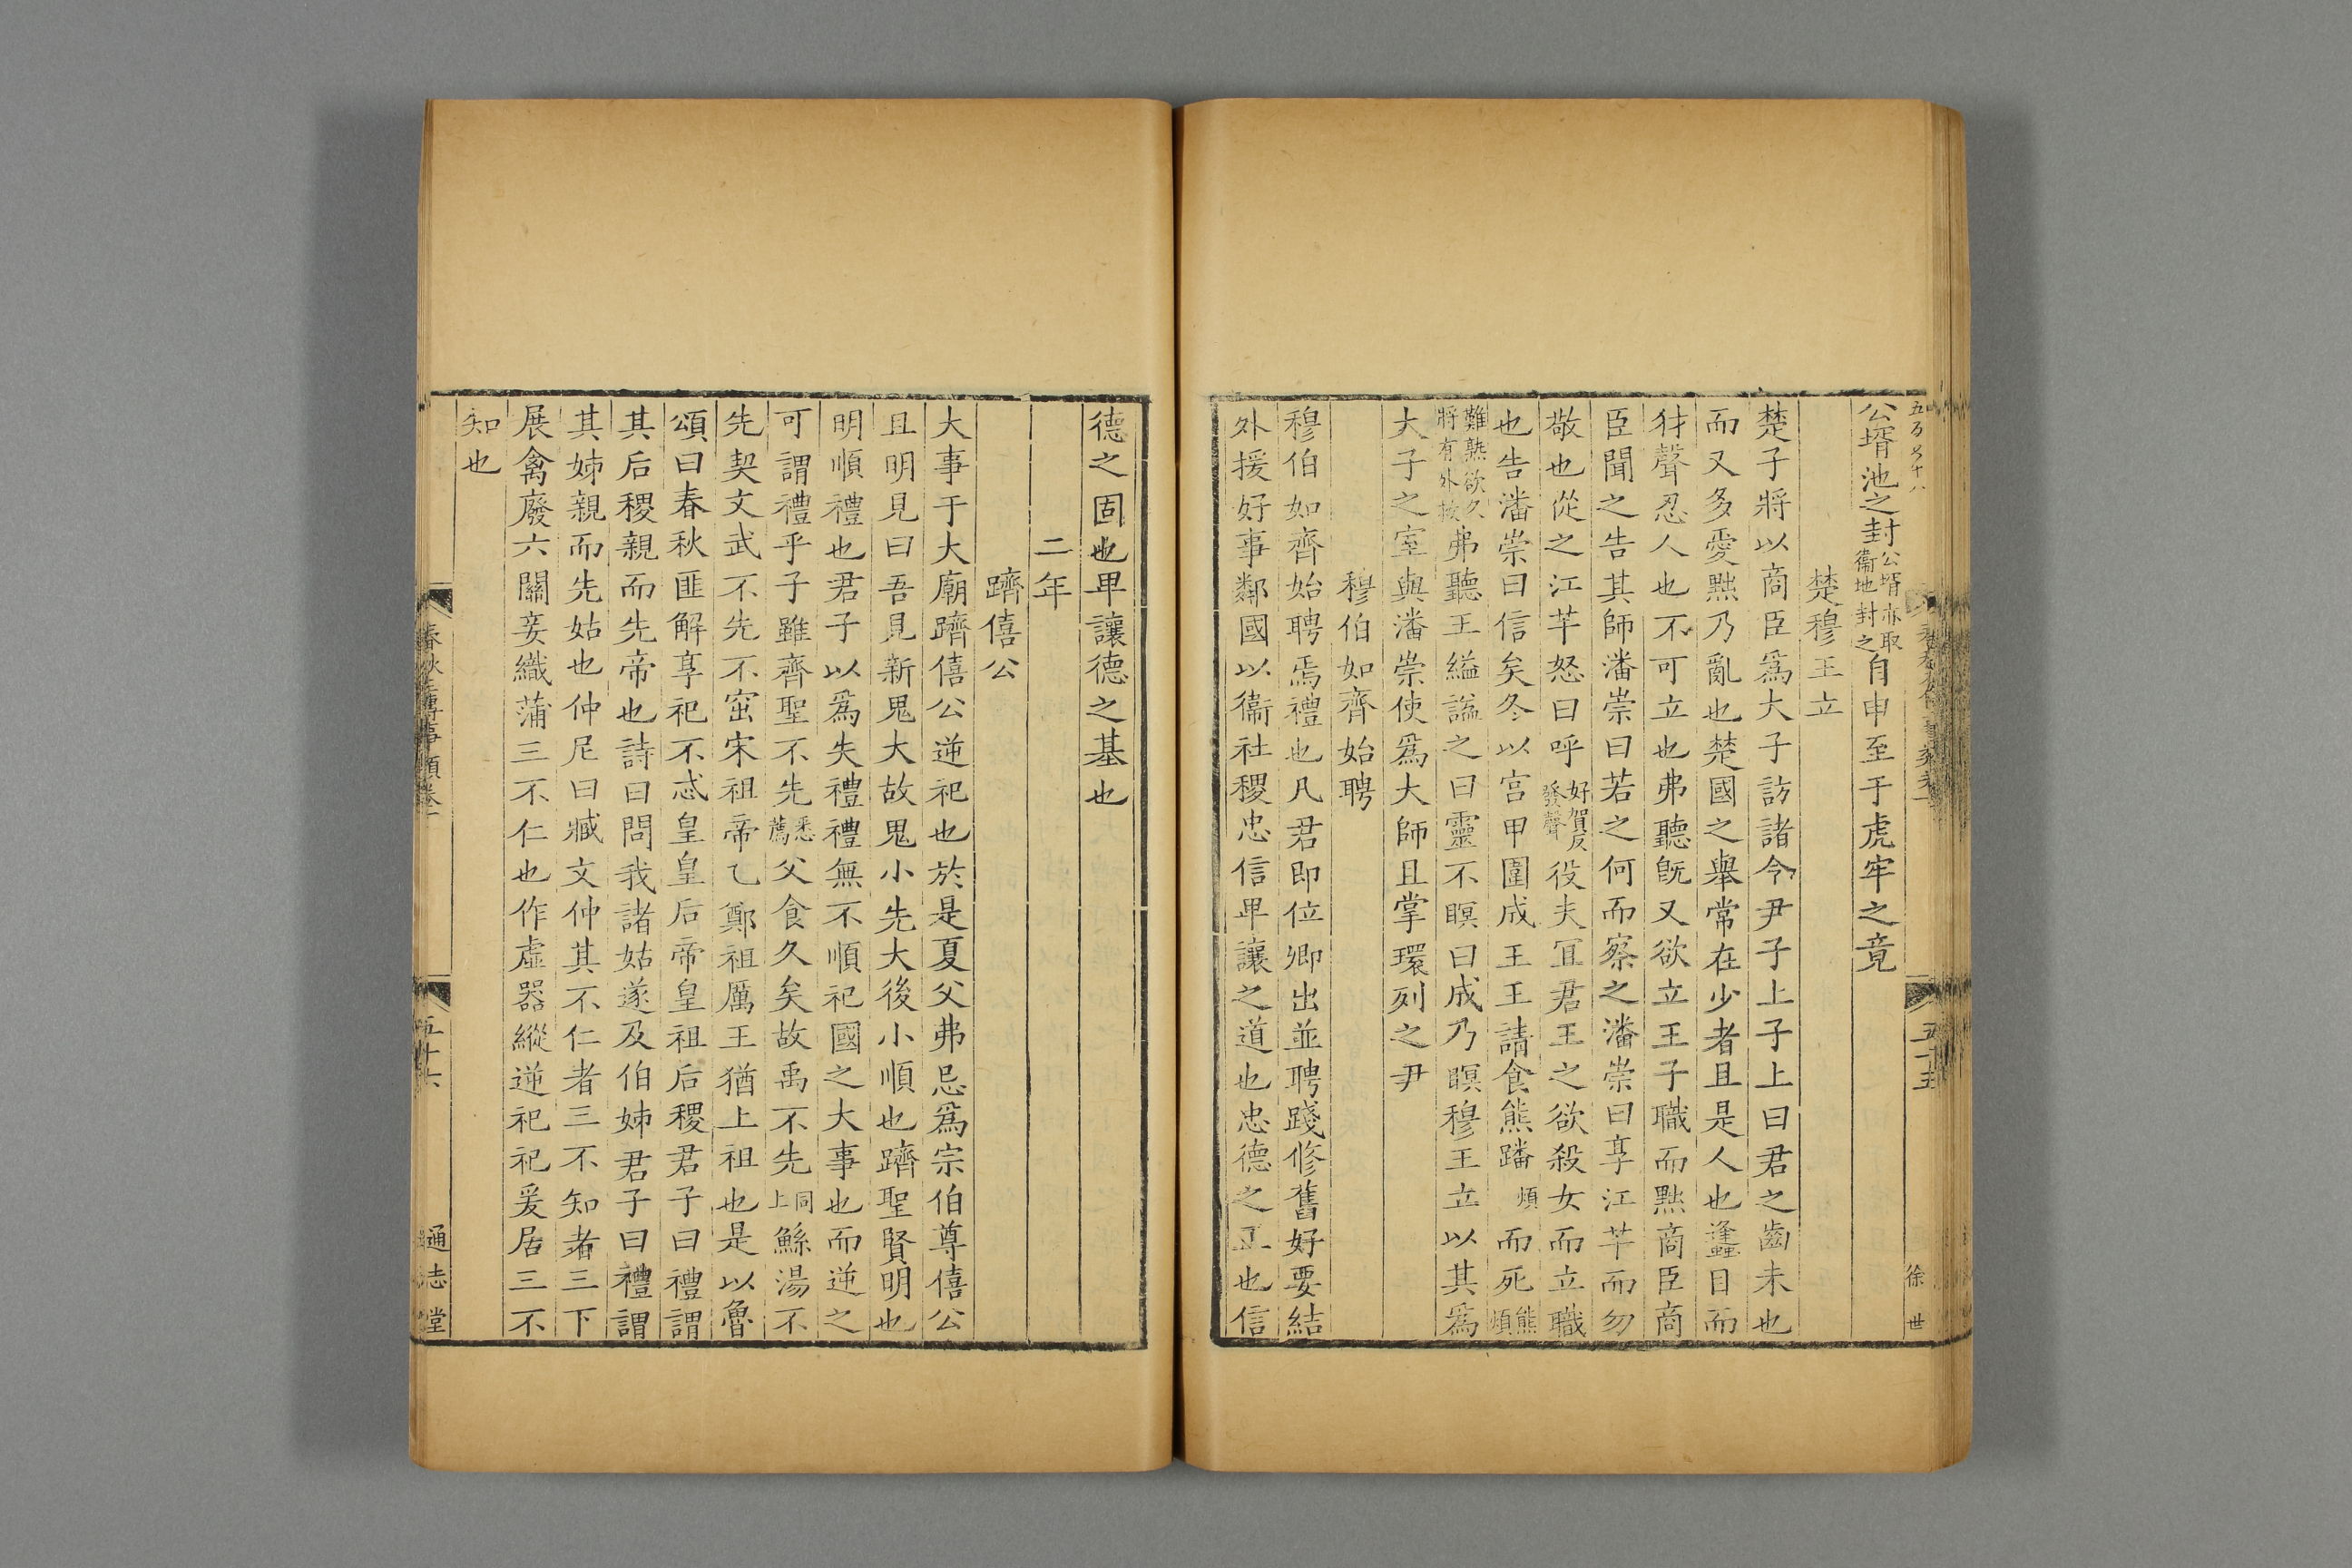 公壻池之封公壻亦取衞地封之自申至于虎牢之竟
楚穆王立
楚子將以商臣爲大子訪諸令尹子上子上曰君之齒未也
而又多愛黜乃亂也楚國之舉常在少者且是人也蠭目而
豺聲忍人也不可立也弗聽旣又欲立王子職而黜商臣商
臣聞之告其師潘崇曰若之何而察之潘崇曰享江芉而勿
敬也從之江芉怒曰呼好賀反發聲役夫宜君王之欲殺女而立職
也告潘崇曰信矣冬以宮甲圍成王王請食熊蹯煩而死熊煩
難熟欲久將有外救弗聽王縊諡之曰靈不瞑曰成乃瞑穆王立以其爲
大子之室與潘崇使爲大師且掌環列之尹
穆伯如齊始聘
穆伯如齊始聘焉禮也凡君即位卿出並聘踐修舊好要結
外援好事鄰國以衞社稷忠信卑讓之道也忠德之正也信
五十五
徐世
德之固也卑讓德之基也
二年
躋僖公
大事于大廟躋僖公逆祀也於是夏父弗忌爲宗伯尊僖公
且明見曰吾見新鬼大故鬼小先大後小順也躋聖賢明也
明順禮也君子以爲失禮禮無不順祀國之大事也而逆之
可謂禮乎子雖齊聖不先悉薦父食久矣故禹不先同上鯀湯不
先契文武不先不窋宋祖帝乙鄭祖厲王猶上祖也是以魯
頌曰春秋匪解享祀不忒皇皇后帝皇祖后稷君子曰禮謂
其后稷親而先帝也詩曰問我諸姑遂及伯姊君子曰禮謂
其姊親而先姑也仲尼曰臧文仲其不仁者三不知者三下
展禽廢六關妾織蒲三不仁也作虛器縱逆祀祀爰居三不
知也
春秋左傳事類卷一
五十六
通志堂